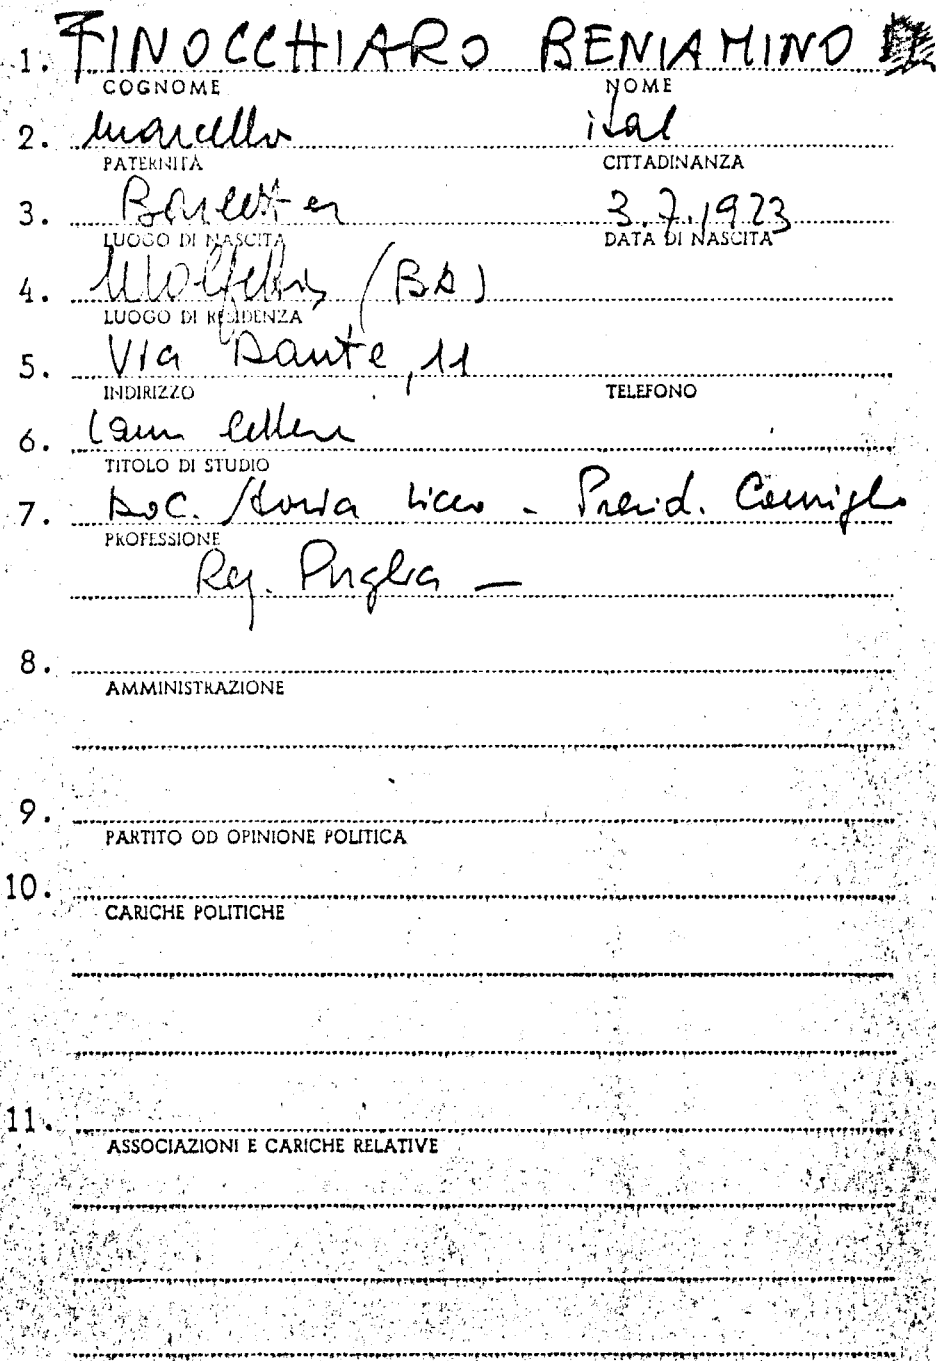 1. FINOCCHIARO BENIAMINO
COGNOME NOME
2. Marcello ital
PATERNITÀ CITTADINANZA
3. Barletta 3.7.1923
LUOGO DI NASCITA DATA DI NASCITA
4. Molfetta (BA)
LUOGO DI RESIDENZA
5. Via Dante, 11
INDIRIZZO TELEFONO
6. Laur. lettere
TITOLO DI STUDIO
7. Doc. Storia Liceo - Presid. Consiglio
PROFESSIONE
Reg. Puglia -
8.
AMMINISTRAZIONE
9.
PARTITO OD OPINIONE POLITICA
10.
CARICHE POLITICHE
11.
ASSOCIAZIONI E CARICHE RELATIVE